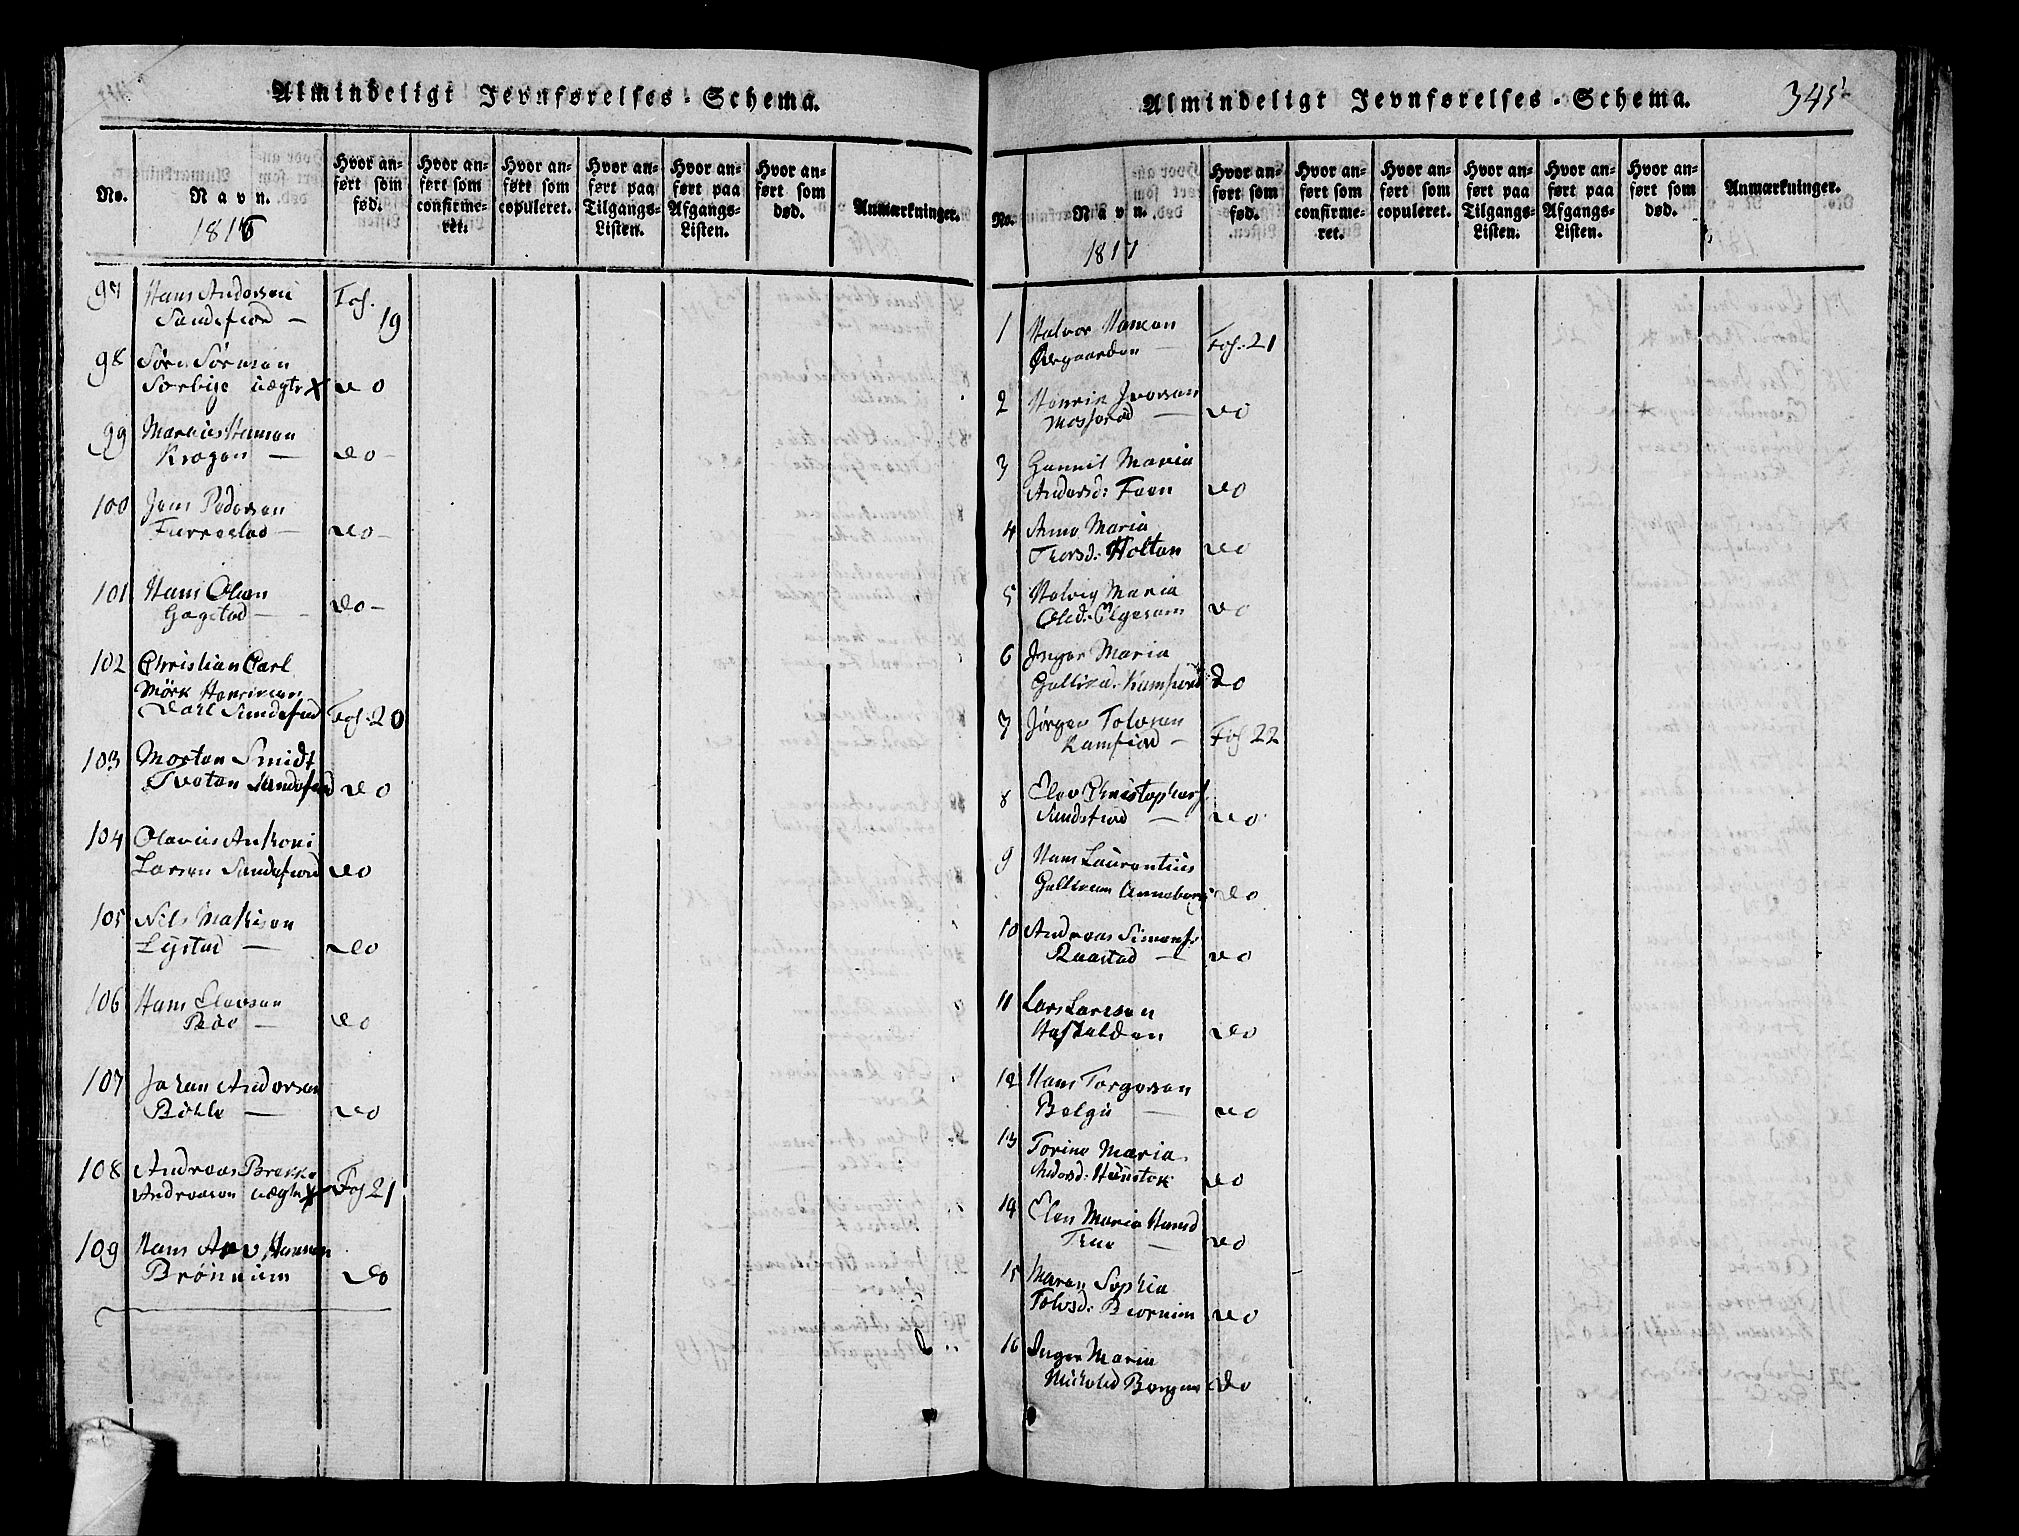 Almindeligt Jevnførelses-Schema.
No.
Navn.
1816
Hvor an-
ført som
fød.
Hvor an-
ført som
confirme-
ret.
Hvor an-
ført som
copuleret.
Hvor an-
ført paa
Tilgangs-
Listen.
Hvor an-
ført paa
Afgangs-
Listen.
Hvor an-
ført som
død.
Anmærkninger.
97 Hans Andersen
Sandefiord — Fol. 19
98 Sørn Sörensen
Sørbÿe uægte X do
99 Marcus Hansen
Krogen — do —
100 Jens Pedersen
Furrestad — do —
101 Hans Olsen
Gogstad — do —
102 Christian Carl
Mörk Henriksen
Dahl Sandefiord Fol. 20
103 Morten Smidt
Tveten Sandefiord do
104 Olavus Anthoni
Larsen Sandefiord do
105 Nils Mathisen
Lystad — do
106 Hans Elevsen
Röe — do
107 Johan Andersen
Böhle — do
108 Andreas Brekke
Andreasen uægte X Fol 21
109 Hans Hansen
Brönnum do
Almindeligt Jevnførelses-Schema.
345
No.
Navn.
1817
Hvor an-
ført som
fød.
Hvor an-
ført som
confirme-
ret.
Hvor an-
ført som
copuleret.
Hvor an-
ført paa
Tilgangs-
Listen.
Hvor an-
ført paa
Afgangs-
Listen.
Hvor an-
ført som
død.
Anmærkninger.
1 Halvor Hansen
Øregaarden — Fol. 21
2 Henrik Iversen
Mosserød — do
3 Gunnil Maria
Andersd: Feen do
4 Anne Maria
Thorsd: Holtan do
5 Helvig Maria
Olsd: Elgesem do
6 Inger Maria
Gulliksd. Kamfiord do
7 Jörgen Tolvsen
Kamfiord — Fol 22
8 Elev Christophers.
Sandefiord — do
9 Hans Laurentius
Gulliksen Anneberg do
10 Andreas Simens.
Raastad — do
11 Lars Larsen
Hasthalden do
12 Hans Torgersen
Bolgü — do
13 Torine Maria
Andersd: Hünstok do
14 Elen Maria Hansd
— do
15 Maren Sophia
Tolvsd: Biornum do
16 Inger Maria
Nichelsd Bergan do